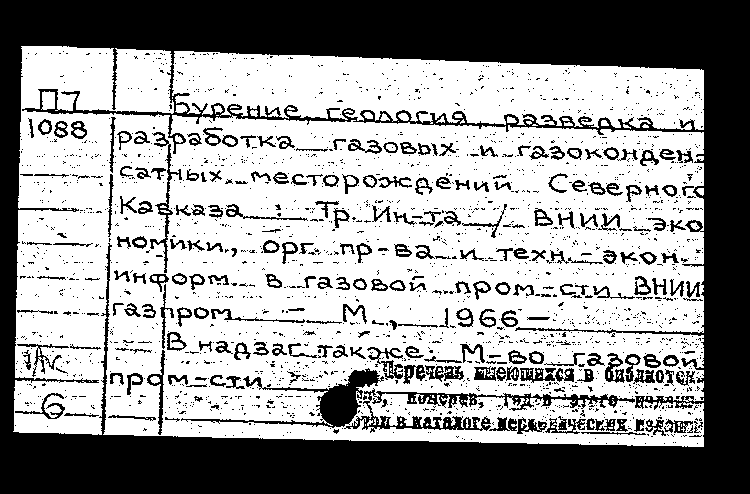 П7
Бурение, геология, разведка и
1088
разработка газовых и газоконден-
сатных месторождений Северного
Кавказа : Тр. Ин-та / ВНИИ эко
номики, орг. пр-ва и техн.-экон.
информ. в газовой пром-сти ВНИИЭ
газпром. - М., 1966 —
В надзаг. также: М-во газовой
пром-сти
Перечень имеющихся в библиотек.
номеров, годов этого издания
смотри в каталоге периодических изданий
6